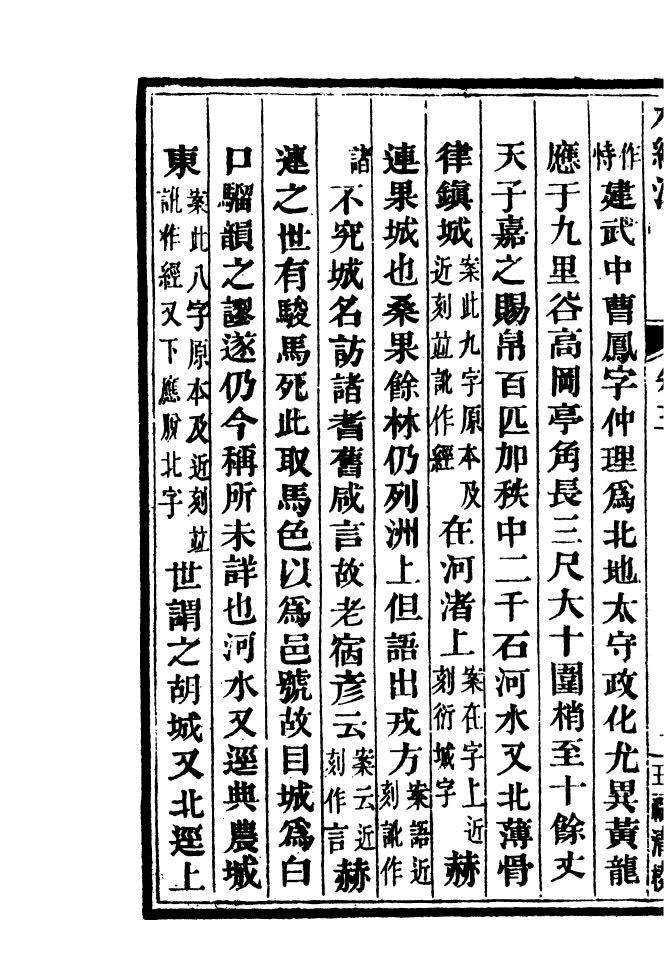 作恃建武中曹鳳字仲理爲北地太守政化尤異黃龍
應于九里谷高岡亭角長三尺大十圍梢至十餘丈
天子嘉之賜帛百匹加秩中二千石河水又北薄骨
律鎮城案此九字原本及近刻竝訛作經在河渚上案在字上近刻衍城字赫
連果城也桑果餘林仍列洲上但語出戎方案語近刻訛作
諸不究城名訪諸耆舊咸言故老宿彥云案云近刻作言赫
連之世有駿馬死此取馬色以爲邑號故目城爲白
口騮韻之謬遂仍今稱所未詳也河水又逕典農城
東案此八字原本及近刻竝訛作經又下應脫北字世謂之胡城又北逕上